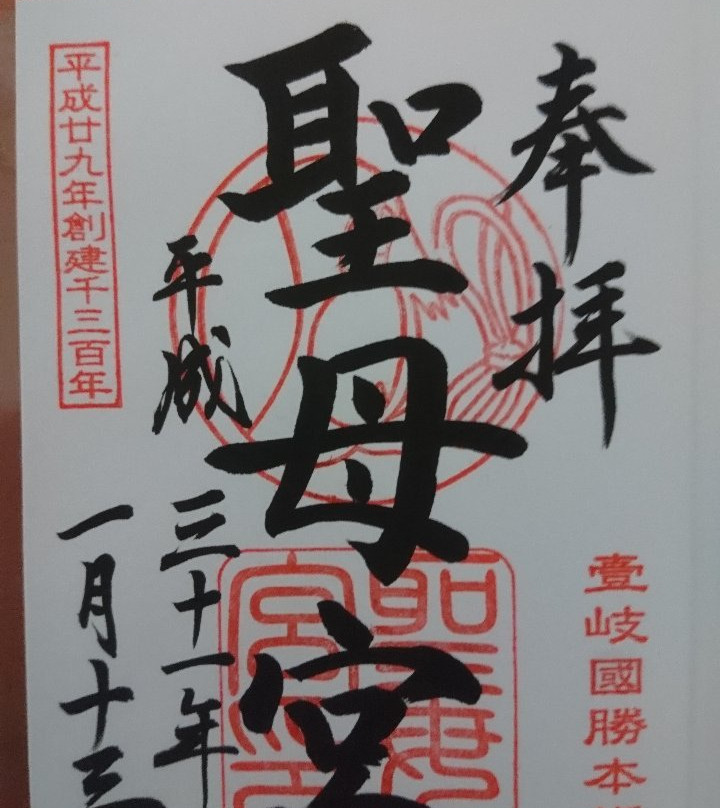 奉拝
壹岐國勝本
聖母宮
平成三十一年
一月十三
平成廿九年創建千三百年